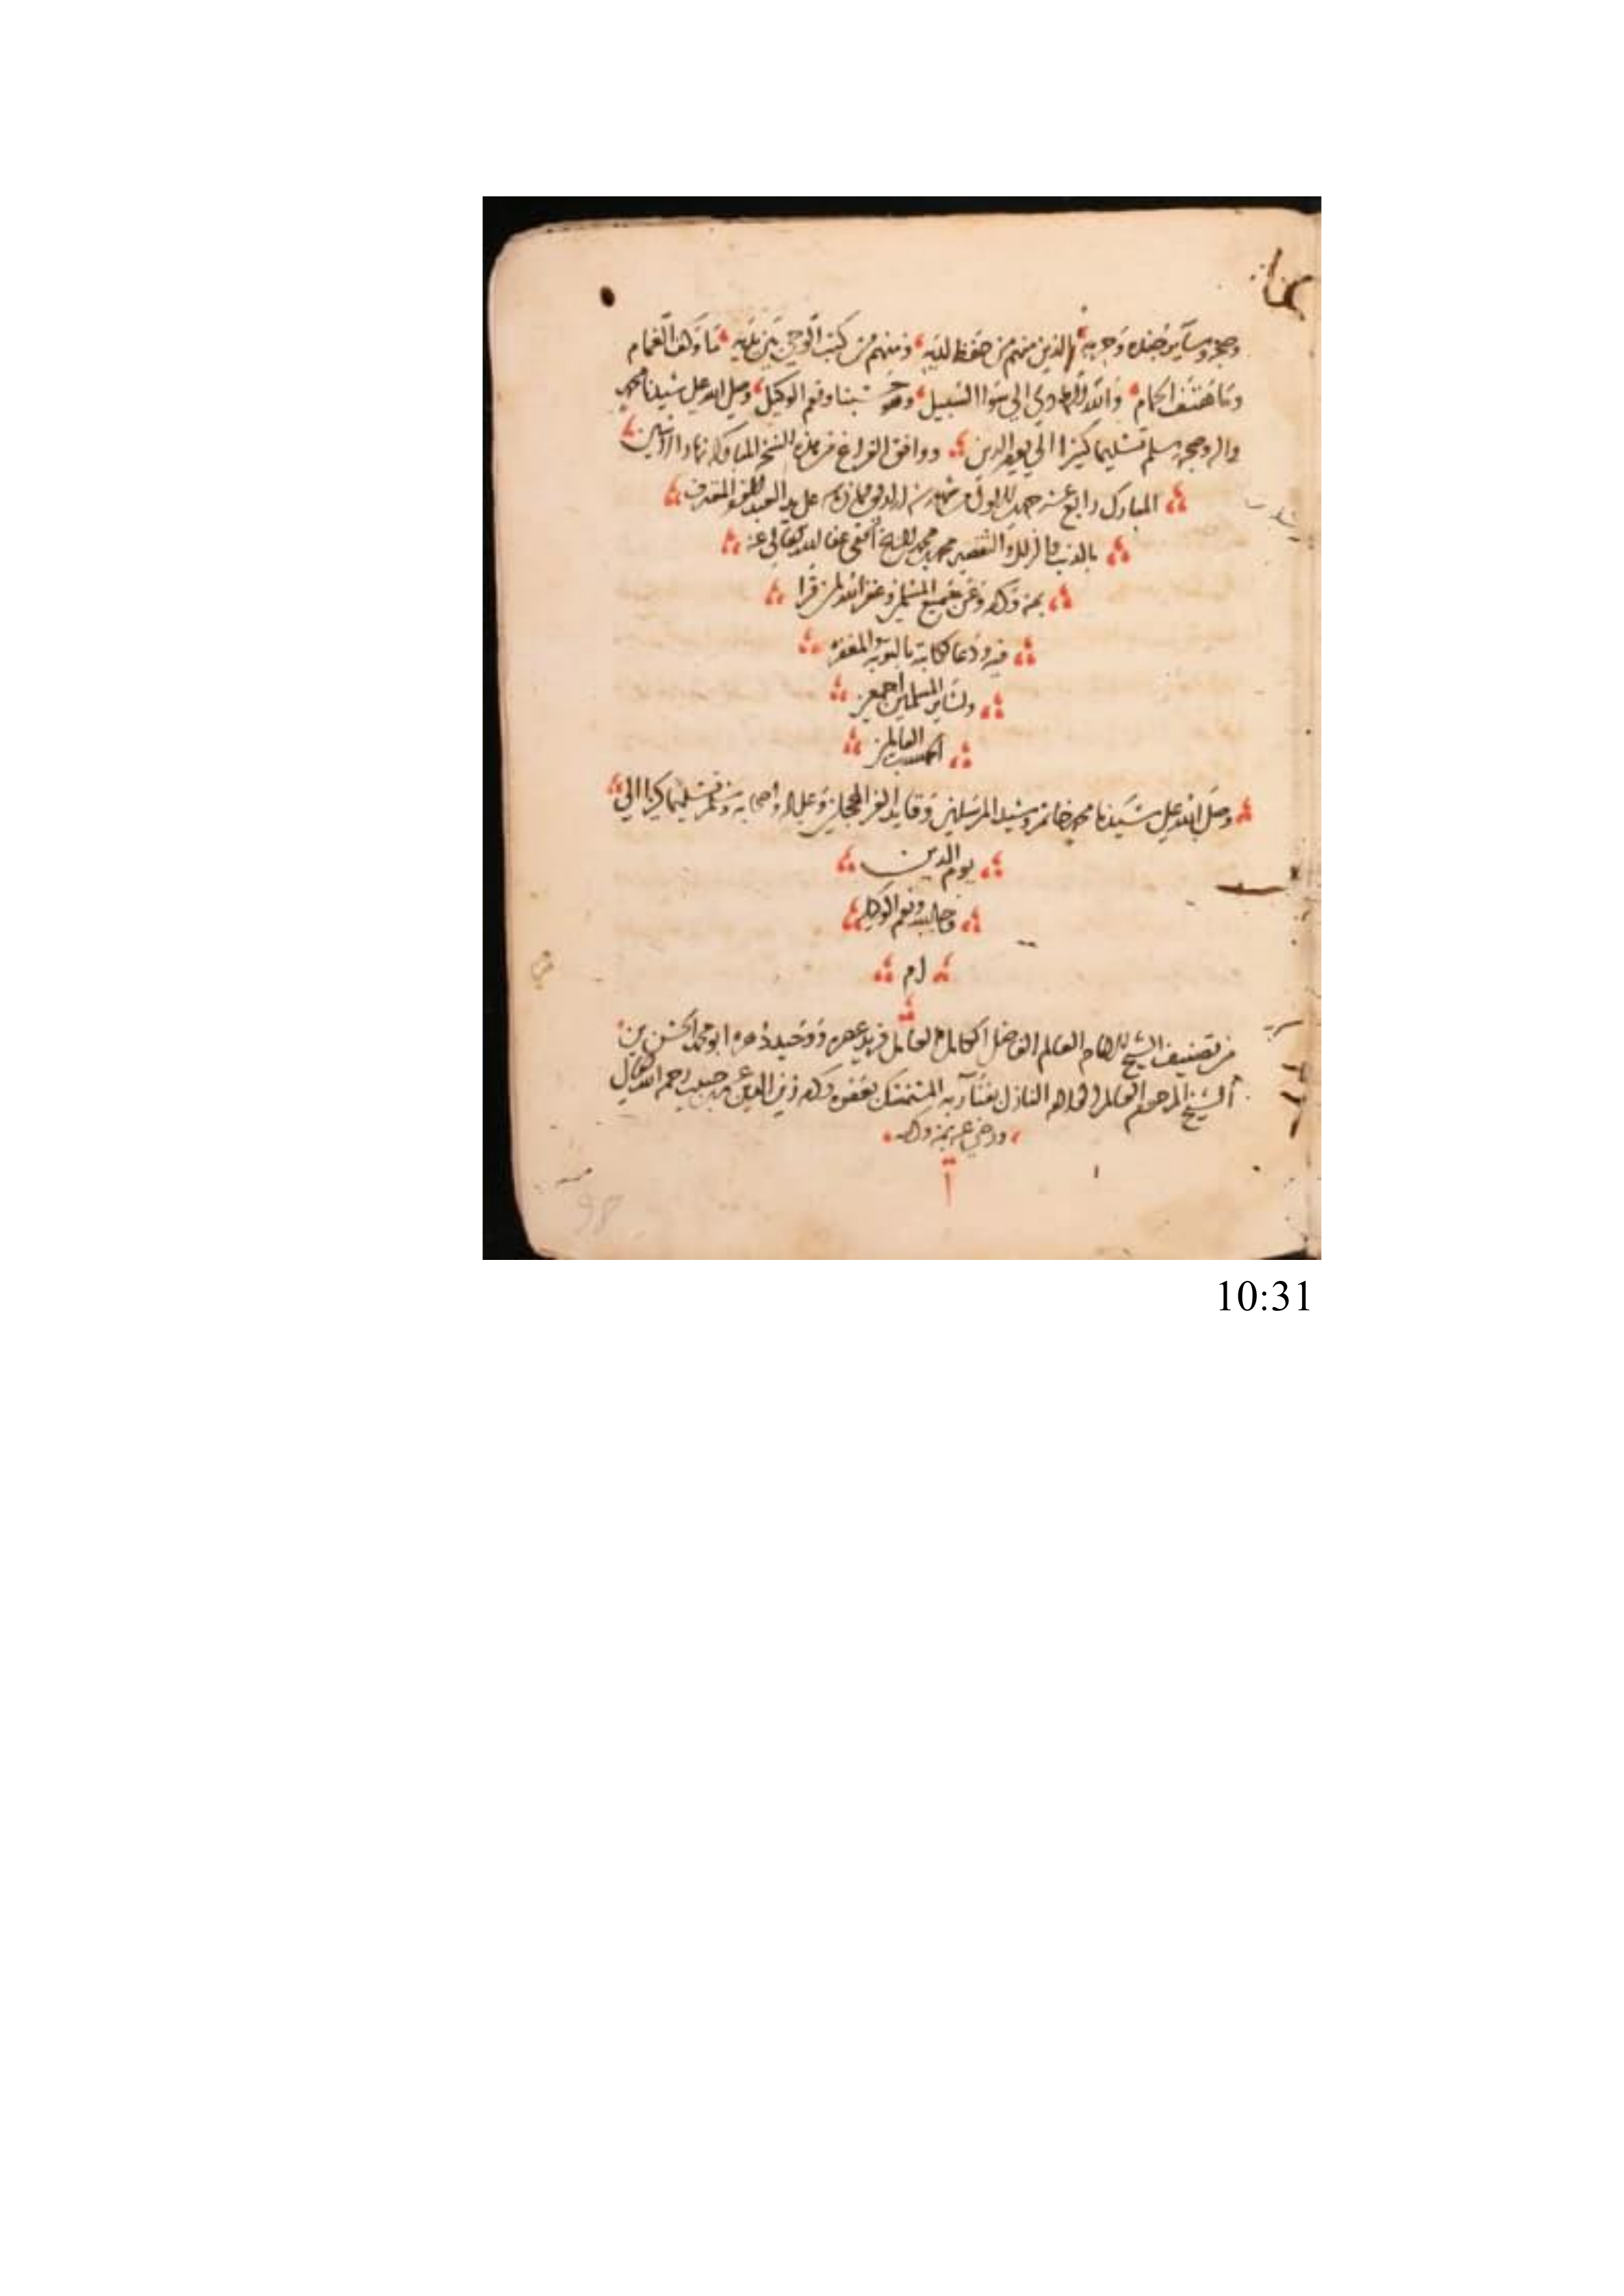 وصحبه وساير جنده وحزبه الذين منهم من حفظ لديه ومنهم من كتب الوحي بين يديه ما وكف الغمام
وما هتف الحمام والله الهادي الي سوا السبيل وهو حسبنا ونعم الوكيل وصلي الله علي سيدنا محمد
واله وصحبه وسلم تسليما كثيرا الي يوم الدين ووافق الفراغ من هذه النسخه المباركه نهار الاثنين
المبارك رابع عشر جمادي الاول من شهور سنه علي يد العبد الفقير المعترف
بالذنب والزلل والتقصير محمد بن محمد عفا الله تعالي عنه
بمنه وكرمه وعن جميع المسلمين وغفر الله لمن قرا
فيه ودعا لكاتبه بالتوبه والمغفره
ولساير المسلمين اجمعين
الحمد لله رب العالمين
وصلي الله علي سيدنا محمد خاتم وسيد المرسلين وقايد الغر المحجلين وعلي اله واصحابه وسلم تسليما كثيرا الي
يوم الدين
وحسبنا الله ونعم الوكيل
ام
من تصنيف الشيخ الامام العالم الفاضل الكامل العامل فريد عصره ووحيد دهره ابو محمد الحسن بن
الشيخ المرحوم العالم النازل بفنا ربه المتمسك بعفوه وكرمه زين الدين عمر بن حبيب رحمه الله تعالي
ورضي عنه بمنه وكرمه
98
10:31